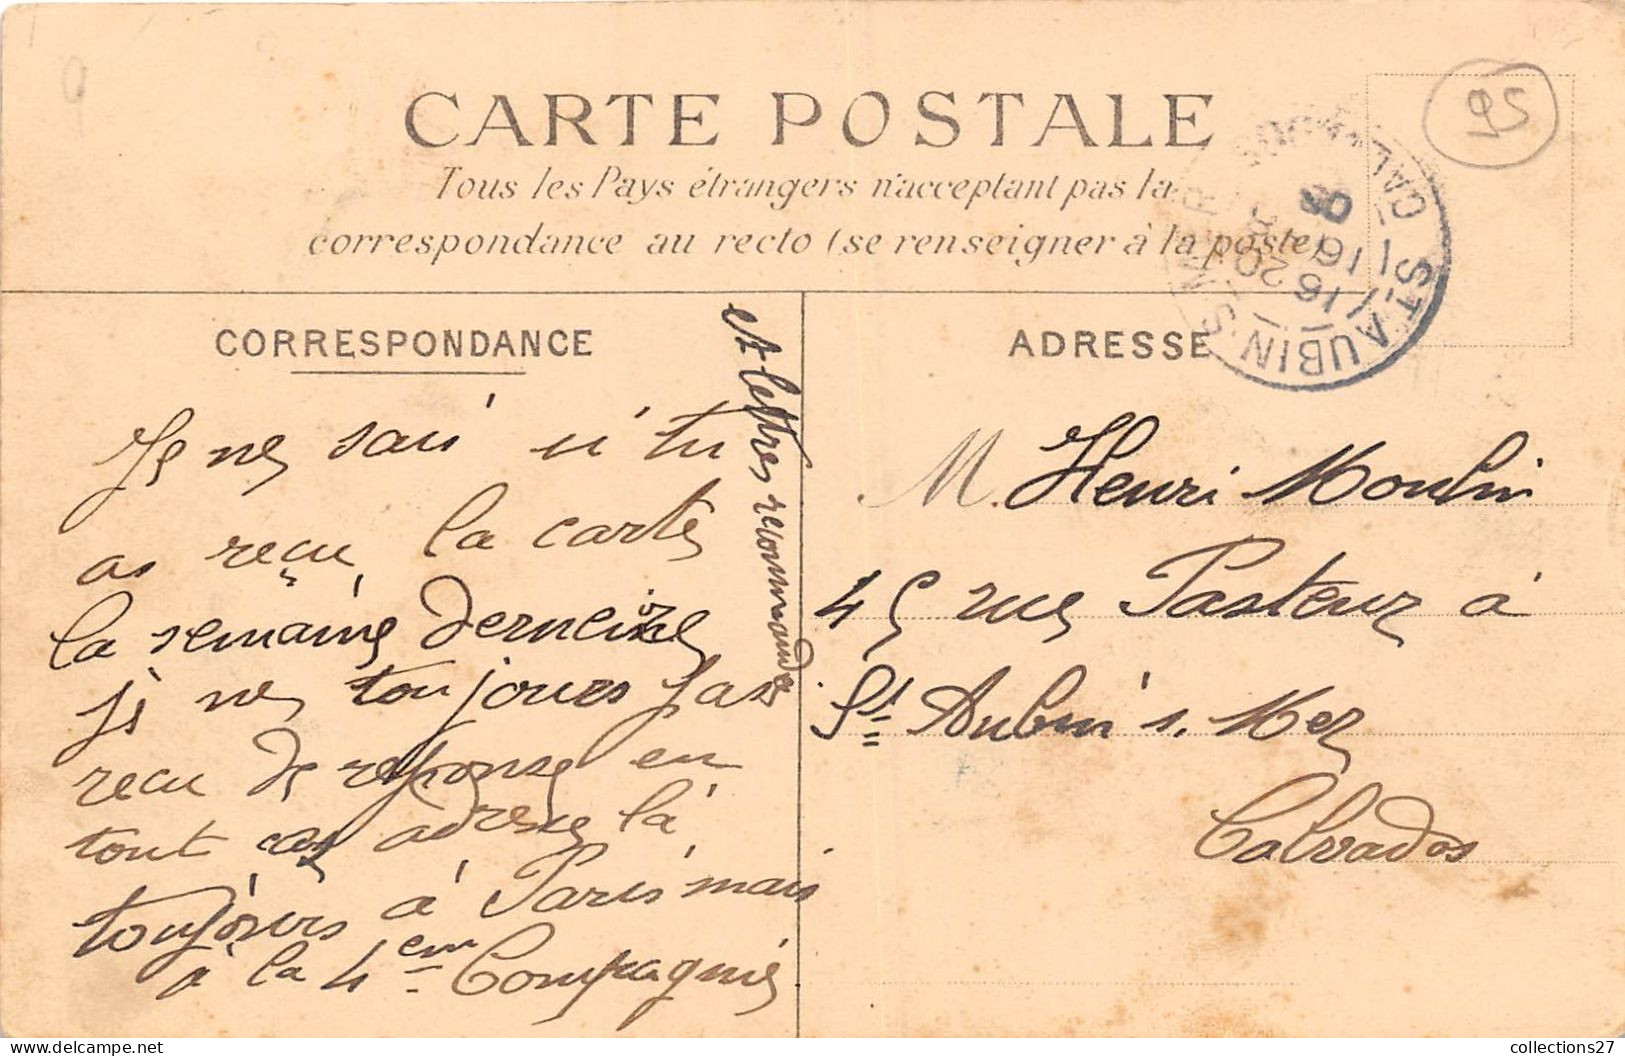 95
CARTE POSTALE
Tous les Pays étrangers n'acceptant pas la
correspondance au recto (se renseigner à la poste)
ST AUBIN S MER CAL
16 20
16
CORRESPONDANCE
ADRESSE
Je ne sais si tu
as reçu la carte
la semaine derneire
je ne toujours pas
recu de reponse en
tout cas adresse là
toujours à Paris mais
à la 4em Compagnie
et lettres recommandée
M. Henri Moulin
45 rue Pasteur à
St Aubin s. Mer
Calvados
collections27